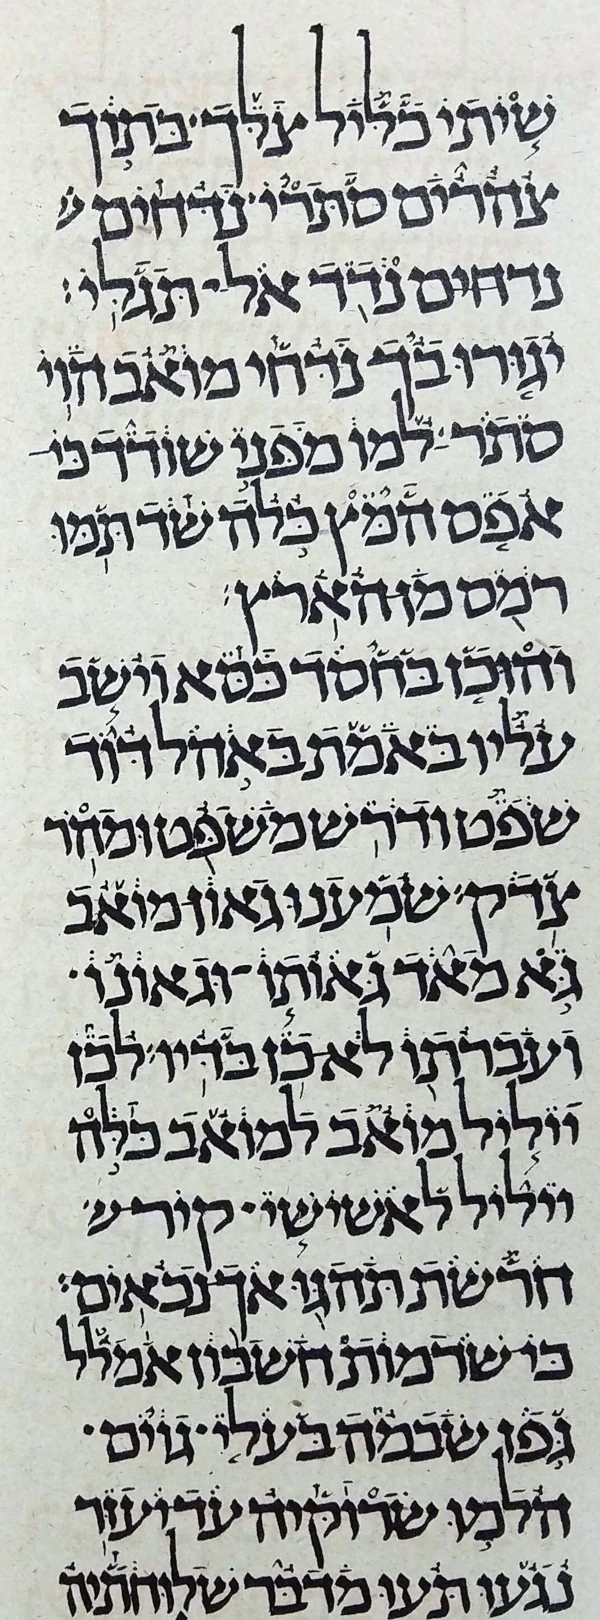 שיתי כליל צלך בתוך
צהרים סתרי נדחים
נדחים נדד אל תגלי׃
יגורו בך נדחי מואב הוי
סתר למו מפני שודד כי
אפס המץ כלה שד תמו
רמס מן הארץ׃
והוכן בחסד כסא וישב
עליו באמת באהל דוד
שפט ודרש משפט ומהר
צדק׃ שמענו גאון מואב
גא מאד גאותו וגאונו
ועברתו לא כן בדיו׃ לכן
ייליל מואב למואב כלה
ייליל לאשישי קיר
חרשת תהגו אך נכאים׃
כי שדמות חשבון אמלל
גפן שבמה בעלי גוים
הלמו שרוקיה עד יעזר
נגעו תעו מדבר שלוחתיה